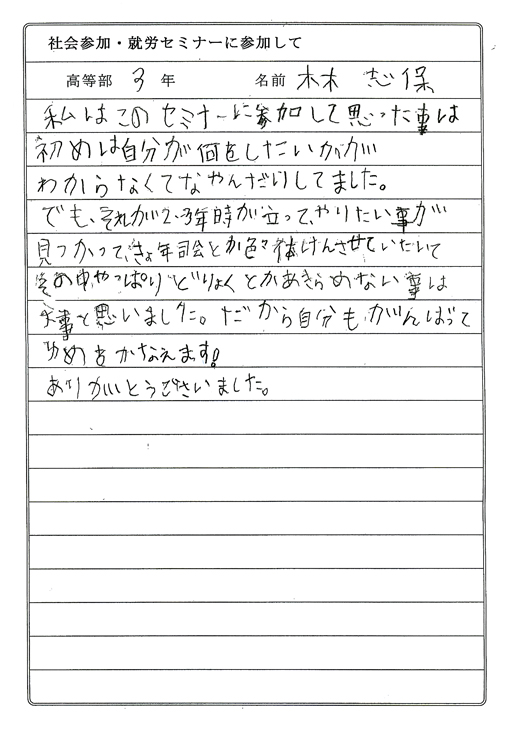 社会参加・就労セミナーに参加して
高等部 3 年 名前 林 志保
私はこのセミナーに参加して思った事は
初めは自分が何をしたいかが
わからなくてなやんだりしてました。
でも、それが2・3年時が立って、やりたい事が
見つかって、きょ年司会とか色々体けんさせていただいて
その中やっぱりどりょくとかあきらめない事は
大事と思いました。だから自分もがんばって
ゆめをかなえます!
ありがとうございました。